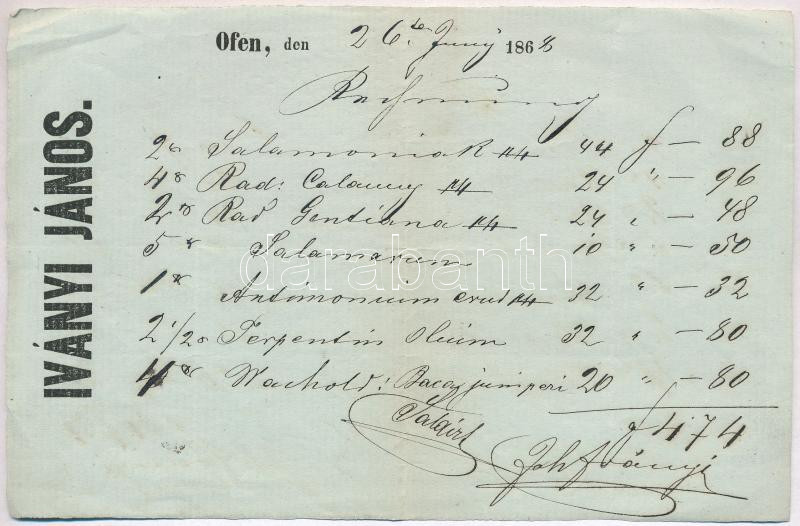 IVÁNYI JÁNOS.
Ofen, den 26te Juny 1868
Rechnung
2 Salamoniak 44 f — 88
4 Rad: Calamy 24 " — 96
2 Rad Gentiana 24 " — 48
5 Salamarum 10 " — 50
1 Antimonium crud 32 " — 32
2 1/2 Terpentin Oleum 32 " — 80
4 Wachold: Baccaj juniperi 20 " — 80
f 4 74
Saldirt
Joh Iványi
darabanth